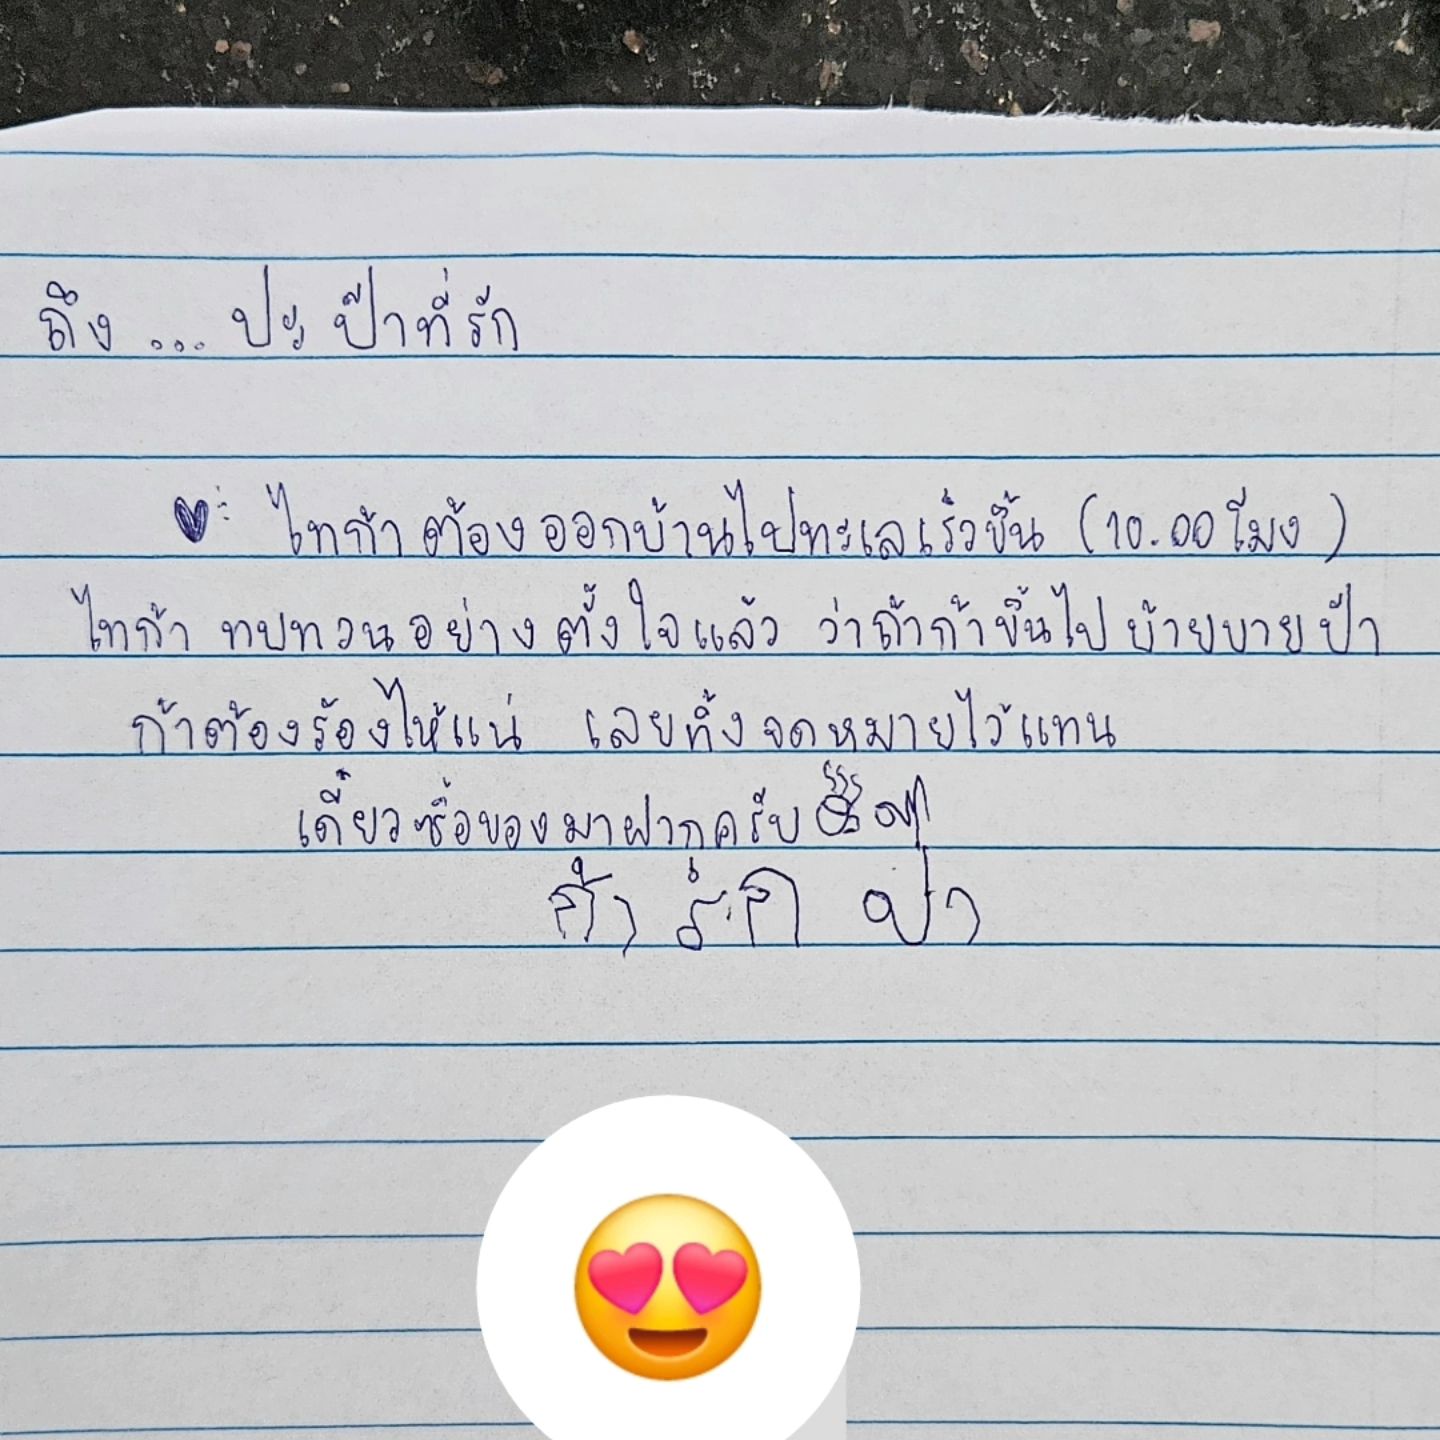 ถึง ... ปะป๊าที่รัก
ไทก้าต้องออกบ้านไปทะเลเร็วขึ้น (10.00 โมง)
ไทก้า ทบทวนอย่างตั้งใจแล้ว ว่าถ้าก้าขึ้นไปบ้ายบายป๊า
ก้าต้องร้องไห้แน่ เลยทิ้งจดหมายไว้แทน
เดี๋ยวซื้อของมาฝากครับ
ก้า รัก ป๊า